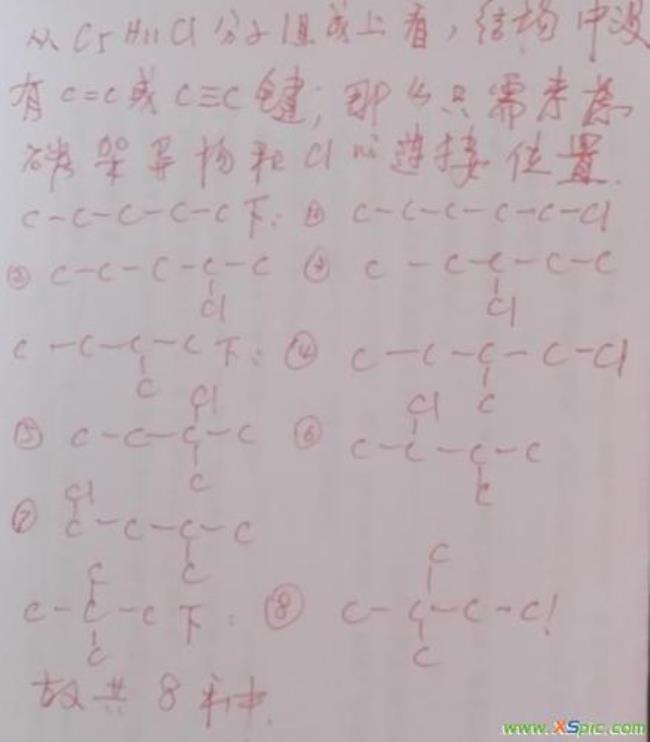 从 C5H11Cl 分子组成上看，结构中没
有 C=C 或 C≡C 键；那么只需考虑
碳架异构和 Cl 的连接位置.
C-C-C-C-C 下：① C-C-C-C-C-Cl
② C-C-C-C-C ③ C-C-C-C-C
Cl Cl
C-C-C-C 下：④ C-C-C-C-Cl
C C
Cl Cl
⑤ C-C-C-C ⑥ C-C-C-C
C C
Cl
⑦ C-C-C-C
C
C C
C-C-C 下：⑧ C-C-C-Cl
C C
故共 8 种.
www.XSpic.com